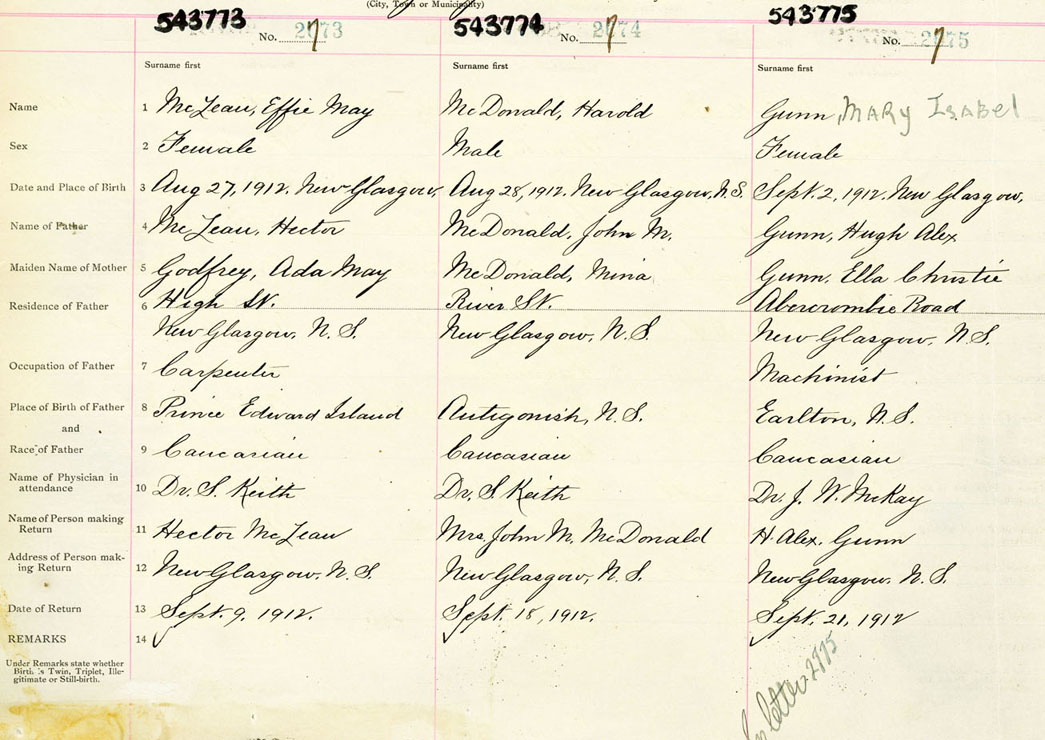 (City, Town or Municipality)
543773 543774 543775
No. 2073 No. 2074 No. 2075
Surname first Surname first Surname first
Name 1 McLean, Effie May McDonald, Harold Gunn, MARY ISABEL
Sex 2 Female Male Female
Date and Place of Birth 3 Aug 27, 1912. New Glasgow, Aug 28, 1912. New Glasgow, N.S. Sept. 2, 1912. New Glasgow,
Name of Father 4 McLean, Hector McDonald, John M. Gunn, Hugh Alex
Maiden Name of Mother 5 Godfrey, Ada May McDonald, Mina Gunn, Ella Christie
Residence of Father 6 High St. River St. Abercrombie Road
New Glasgow, N.S. New Glasgow, N.S. New Glasgow, N.S.
Occupation of Father 7 Carpenter Machinist
Place of Birth of Father 8 Prince Edward Island Antigonish, N.S. Earlton, N.S.
and
Race of Father 9 Caucasian Caucasian Caucasian
Name of Physician in
attendance 10 Dr. S. Keith Dr. S. Keith Dr. J. W. McKay
Name of Person making
Return 11 Hector McLean Mrs. John M. McDonald H. Alex. Gunn
Address of Person mak-
ing Return 12 New Glasgow, N.S. New Glasgow, N.S. New Glasgow. N.S.
Date of Return 13 Sept. 9, 1912. Sept. 18, 1912. Sept. 21, 1912
REMARKS 14
Under Remarks state whether
Birth is Twin, Triplet, Ille-
gitimate or Still-birth.
letter 2975